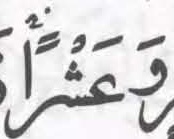 وَعَشْرًا